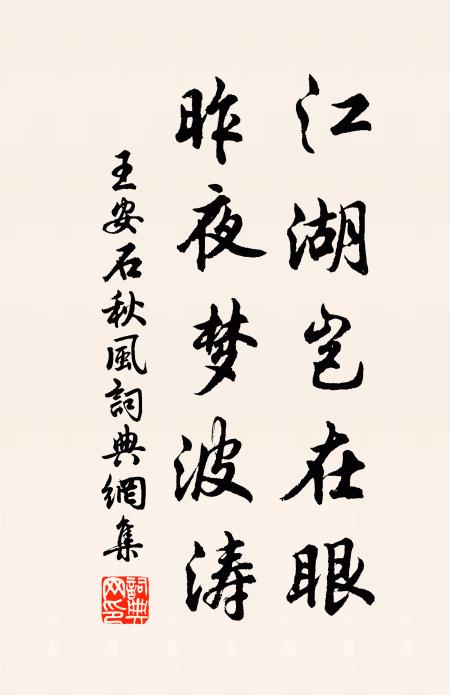 江湖岂在眼
昨夜梦波涛
王安石秋風詞典網集
詞典網印